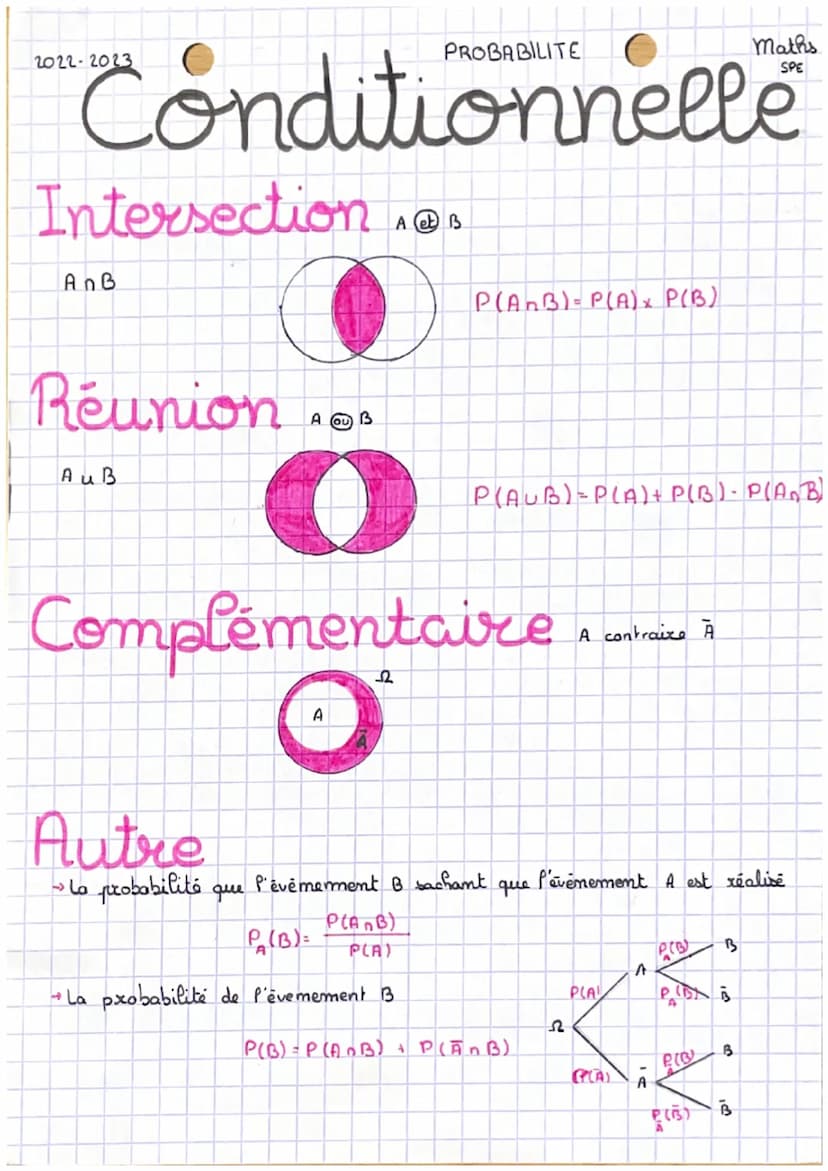 2022-2023 PROBABILITE Maths
SPE
Conditionnelle
Intersection A et B
A∩B
P(A∩B)= P(A)x P(B)
Réunion A ou B
A∪B
P(A∪B)=P(A)+ P(B)- P(A∩B)
Complémentaire A contraire Ā
Ω
A
Ā
Autre
→ La probabilité que l'évènement B sachant que l'évènement A est réalisé
P_A(B)= P(A∩B)
P(A)
→ La probabilité de l'évenement B
P(B)=P(A∩B) + P(Ā∩B)
P_A(B) B
A
P(A) P_A(B̄) B̄
Ω
P_Ā(B) B
P(Ā) Ā
P_Ā(B̄) B̄